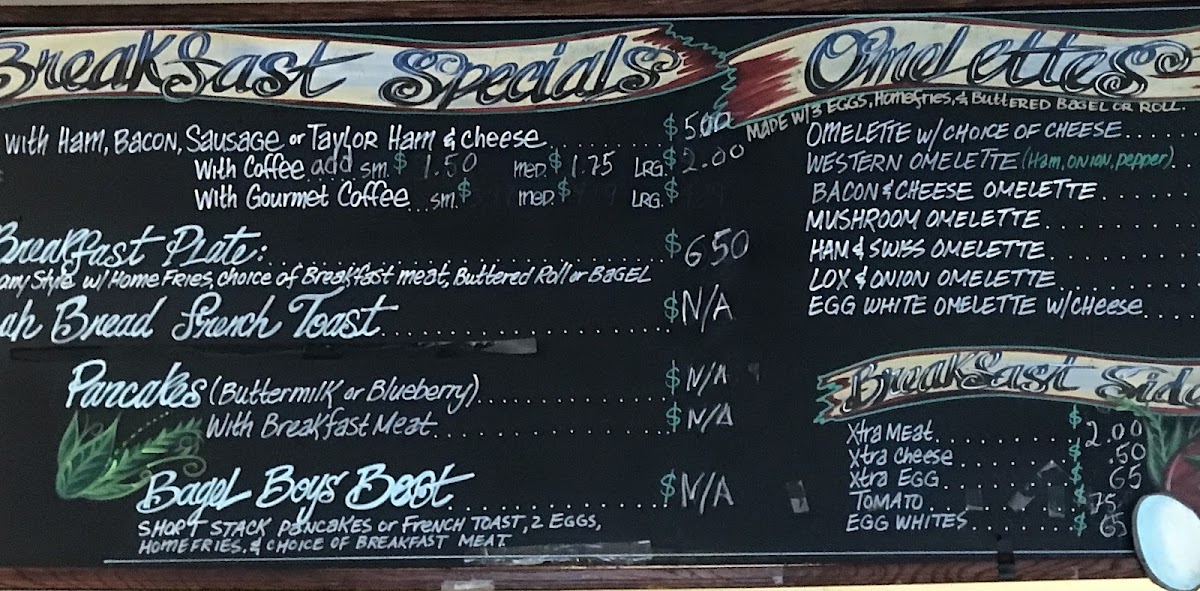 Breakfast Specials
with Ham, Bacon, Sausage or Taylor Ham & Cheese $5.00
With Coffee add sm. $1.50 MED. $1.75 LRG. $2.00
With Gourmet Coffee sm. $ MED. $ LRG. $
Breakfast Plate: $6.50
any Style w/ Home Fries, choice of Breakfast meat, Buttered Roll or BAGEL
ah Bread French Toast $N/A
Pancakes (Buttermilk or Blueberry) $N/A
With Breakfast Meat $N/A
Bagel Boys Best $N/A
SHORT STACK PANCAKES or FRENCH TOAST, 2 EGGS,
HOMEFRIES, & CHOICE OF BREAKFAST MEAT
Omelettes
MADE W/3 EGGS, Homefries, & BUTTERED BAGEL OR ROLL.
OMELETTE w/CHOICE OF CHEESE
WESTERN OMELETTE (Ham, ONION, pepper)
BACON & CHEESE OMELETTE
MUSHROOM OMELETTE
HAM & SWISS OMELETTE
LOX & ONION OMELETTE
EGG WHITE OMELETTE W/CHeese
Breakfast Sid
Xtra MEAT $2.00
Xtra Cheese $.50
Xtra EGG $65
TOMATO $75
EGG WHITES $65